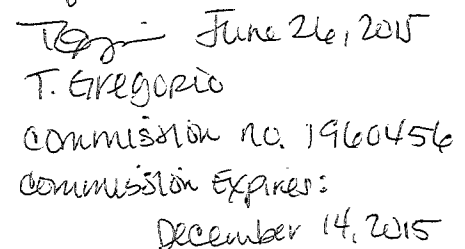 June 26, 2015
T. Gregorio
Commission no. 1960456
Commission Expires:
December 14, 2015